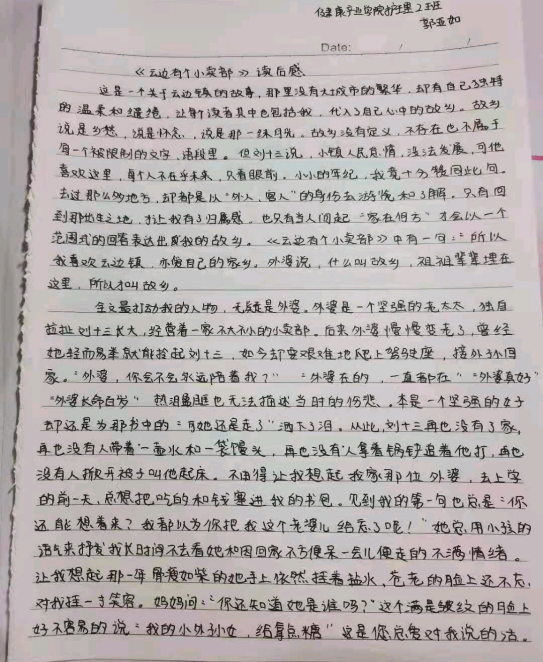 健康产业学院护理2班
郭亚如
Date: / /
《云边有个小卖部》读后感
这是一个关于云边镇的故事，那里没有大城市的繁华，却有自己独特
的温柔和缱绻，让每个读者其中也包括我，代入了自己心中的故乡。故乡
说是乡愁，说是怀念，说是那一缕月光。故乡没有定义，不存在也不属于
每一个被限制的文字、语段里。但刘十三说，小镇人民怠惰，没法发展，可他
喜欢这里，每个人不在乎未来，只看眼前。小小的年纪，我竟十分赞同此句。
去过那么多地方，却都是以“外人，客人”的身份去游览和了解。只有回
到那出生之地，才让我有了归属感，也只有当人问起“家在何方”才会以一个
范围式的回答表达出我的故乡。《云边有个小卖部》中有一句：“所以
我喜欢云边镇，亦爱自己的家乡。外婆说，什么叫故乡，祖祖辈辈埋在
这里，所以才叫故乡。
全文最打动我的人物，无疑是外婆。外婆是一个坚强的老太太，独自
拉扯刘十三长大，经营着一家不大不小的小卖部。后来外婆慢慢变老了，曾经
她轻而易举就能拎起刘十三，如今却要艰难地爬上驾驶座，接外孙回
家。“外婆，你会不会永远陪着我？”“外婆在的，一直都在”“外婆真好”
“外婆长命百岁”热泪盈眶也无法描述当时的伤悲。本是一个坚强的女子
却还是为那书中的“可她还是走了”洒下了泪。从此，刘十三再也没有了家，
再也没有人带着一壶水和一袋馒头，再也没有人拿着锅铲追着他打，再也
没有人掀开被子叫他起床。不由得让我想起我家那位外婆，去上学
的前一天，总想把吃的和钱塞进我的书包。见到我的第一句也总是：“你
还能想着来？我都以为你把我这个老婆儿给忘了呢！”她总用小孩的
语气来抒发我长时间不去看她和因回家不方便呆一会儿便走的不满情绪。
让我想起那一年骨瘦如柴的她手上依然挂着盐水，苍老的脸上还不忘
对我挂一丝笑容。妈妈问：“你还知道她是谁吗？”这个满是皱纹的脸上
好不容易的说：“我的小外孙女，给拿点糖”这是您总爱对我说的话。